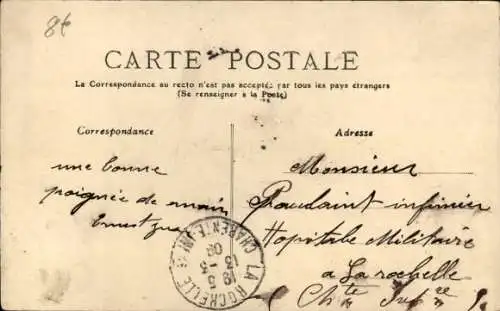 8t
CARTE POSTALE
La Correspondance au recto n'est pas acceptée par tous les pays étrangers
(Se renseigner à la Poste)
Correspondance
Adresse
une bonne
poignée de main
Ernest
Monsieur
infirmier
Hopitale Militaire
a La rochelle
Ch te Infre
LA ROCHELLE
CHARENTE-INFRE